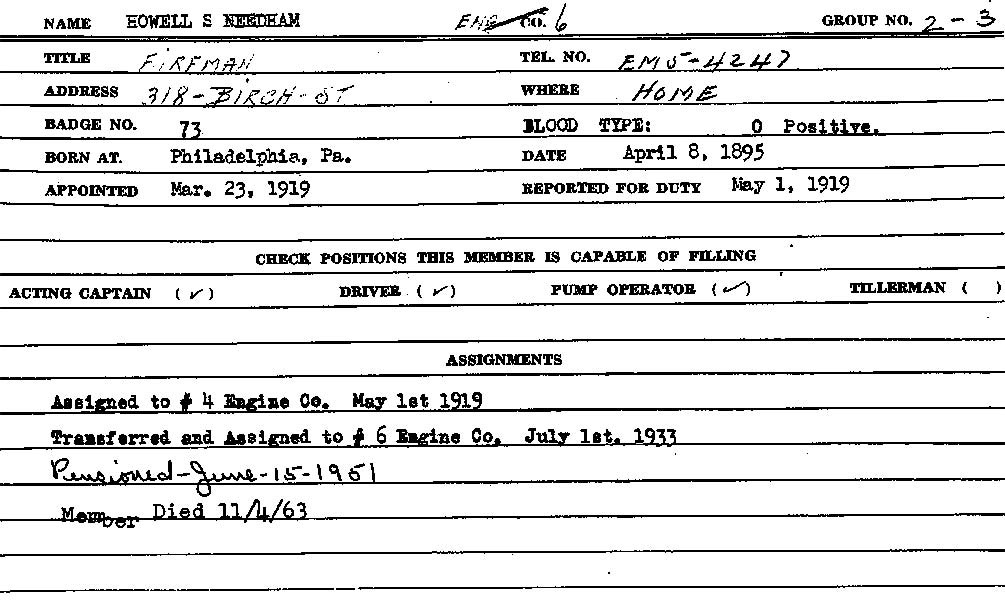 NAME HOWELL S NEEDHAM ENG CO. 6 GROUP NO. 2 - 3
TITLE FIREMAN TEL. NO. EM 5-4247
ADDRESS 318-BIRCH-ST WHERE HOME
BADGE NO. 73 BLOOD TYPE: O Positive.
BORN AT. Philadelphia, Pa. DATE April 8, 1895
APPOINTED Mar. 23, 1919 REPORTED FOR DUTY May 1, 1919
CHECK POSITIONS THIS MEMBER IS CAPABLE OF FILLING
ACTING CAPTAIN (✓) DRIVER (✓) PUMP OPERATOR (✓) TILLERMAN ( )
ASSIGNMENTS
Assigned to # 4 Engine Co. May 1st 1919
Transferred and Assigned to # 6 Engine Co. July 1st. 1933
Pensioned-June-15-1951
Member Died 11/4/63